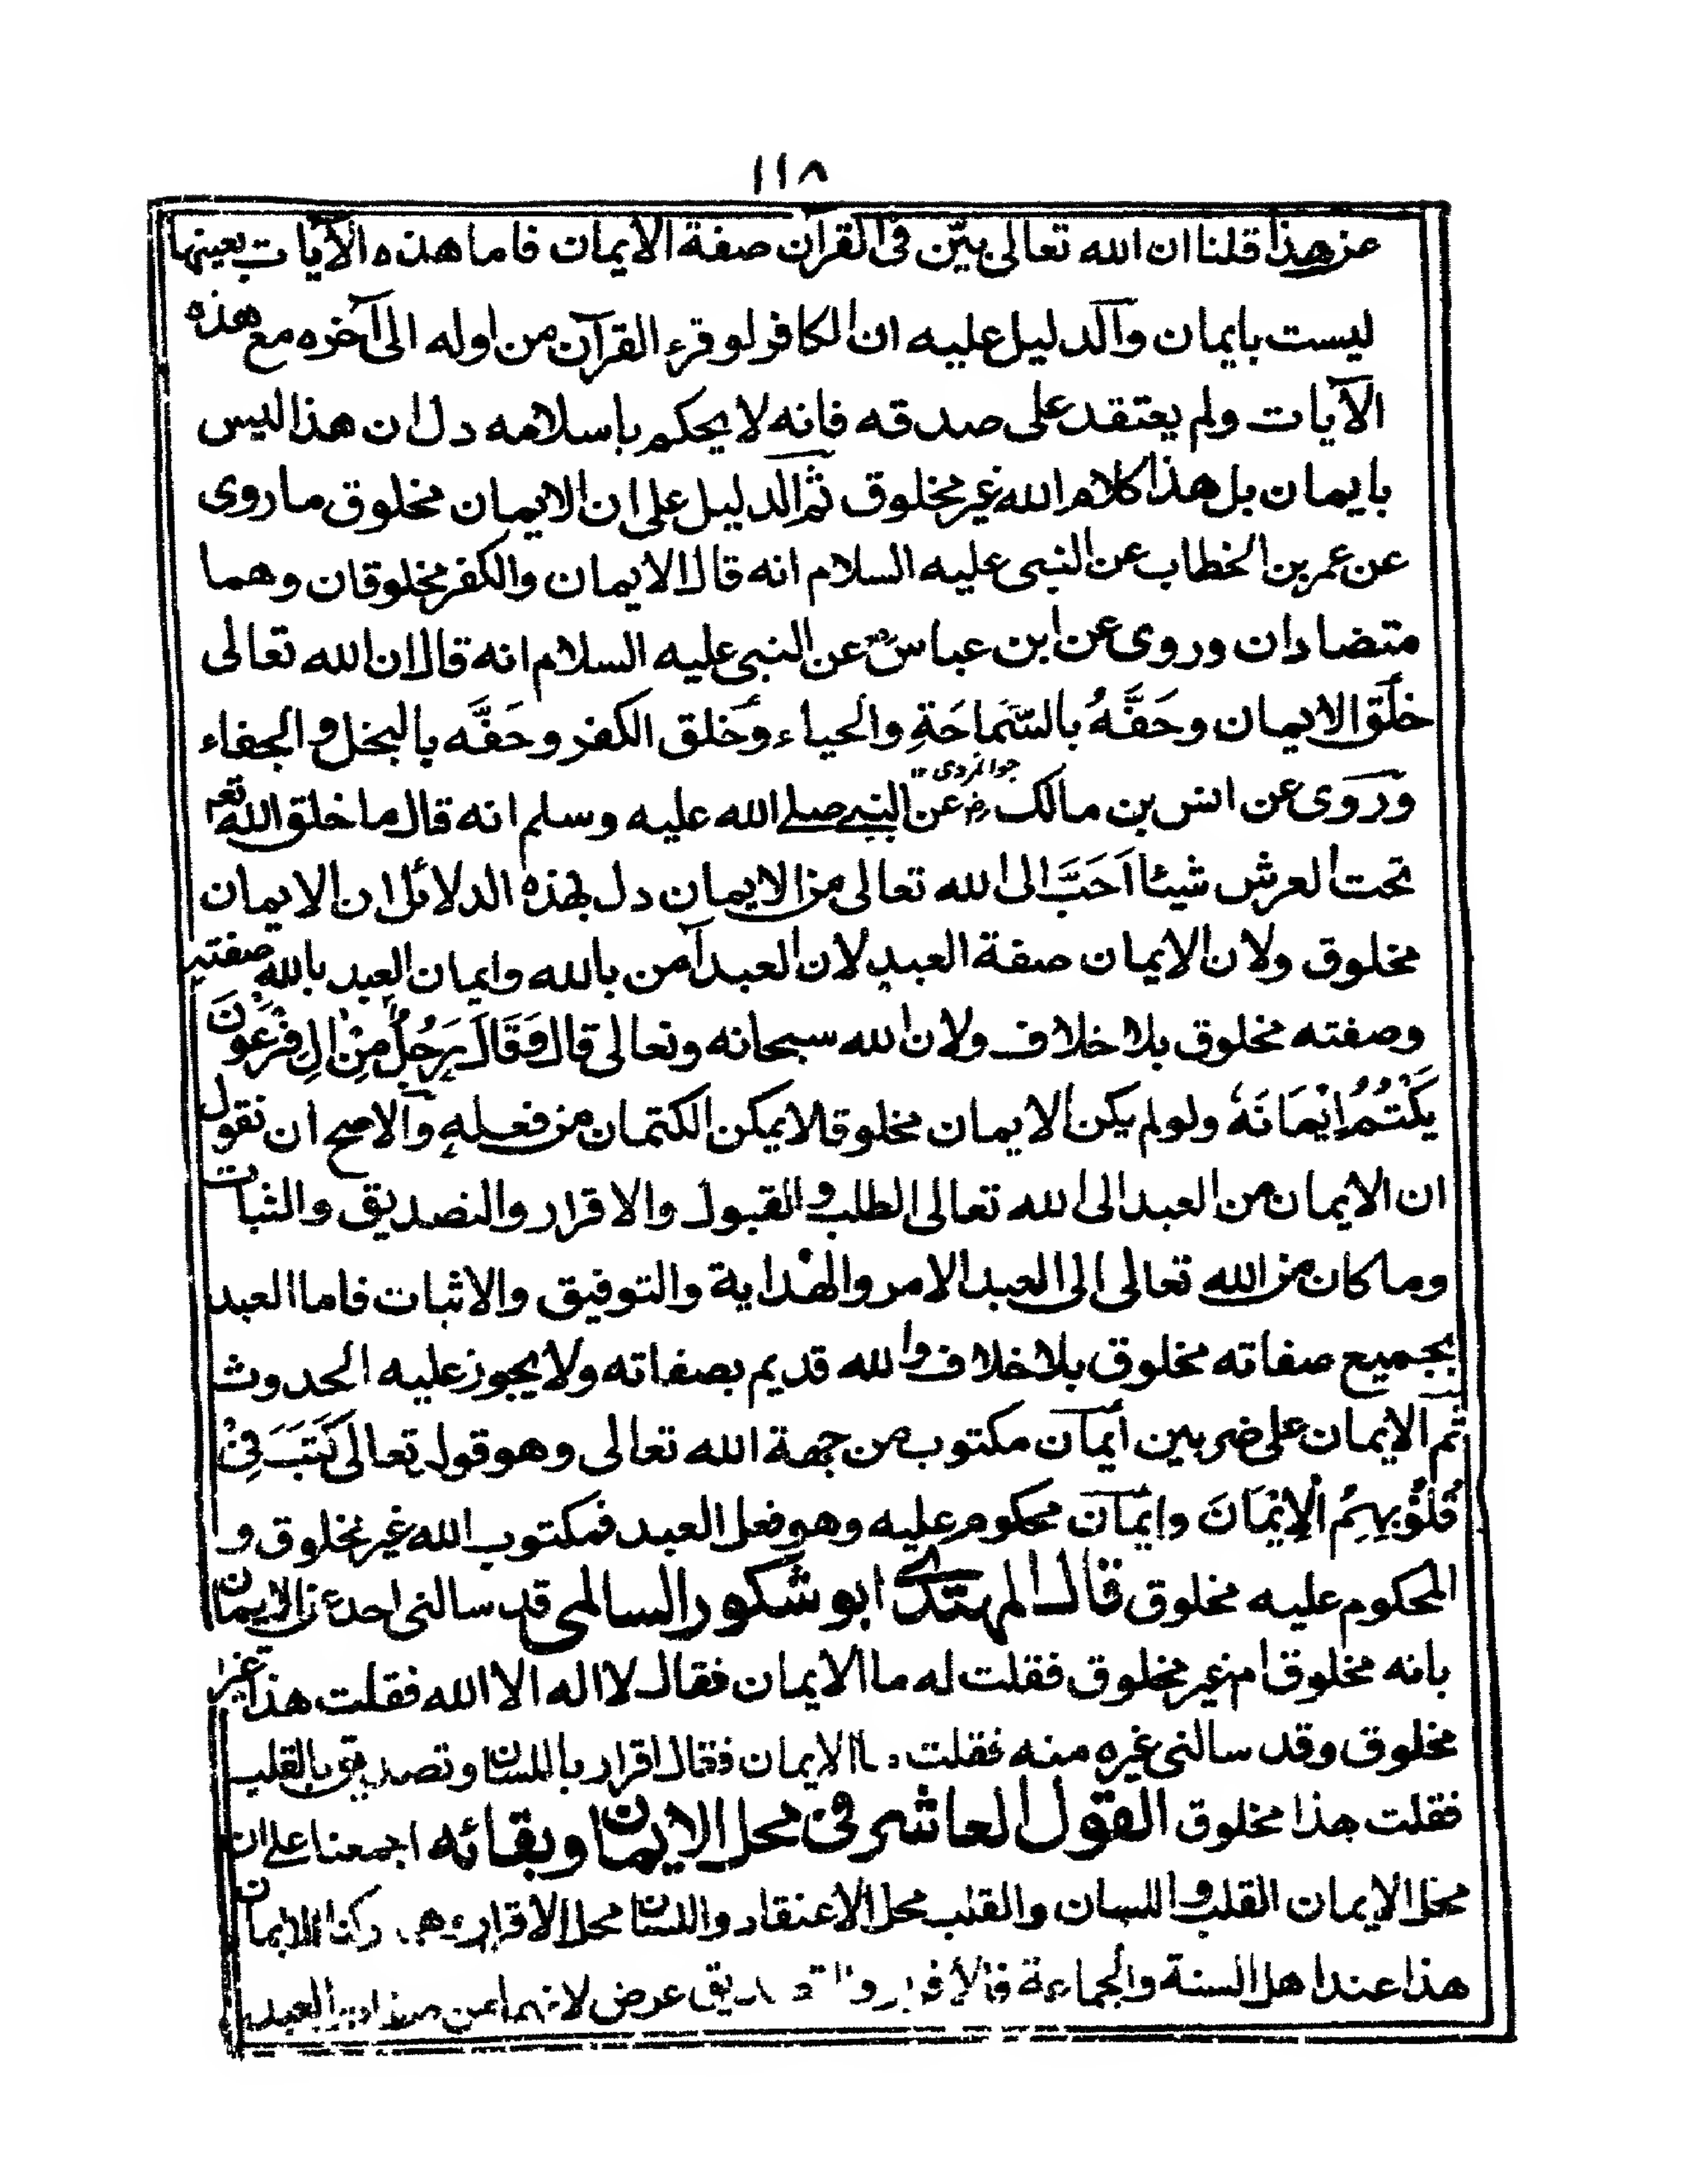 ١١٨
عن هذا قلنا ان الله تعالى بيّن فى القرآن صفة الايمان فاما هذه الآيات بعينها
ليست بايمان والدليل عليه ان الكافر لو قرء القرآن من اوله الى آخره مع هذه
الآيات ولم يعتقد على صدقه فانه لا يحكم باسلامه دل ان هذا ليس
بايمان بل هذا كلام الله غير مخلوق ثم الدليل على ان الايمان مخلوق ما روى
عن عمر بن الخطاب عن النبى عليه السلام انه قال الايمان والكفر مخلوقان وهما
متضادان وروى عن ابن عباس رض عن النبى عليه السلام انه قال ان الله تعالى
خلق الايمان وحَفَّهُ بالسَّمَاحَةِ والحياء وخلق الكفر وحَفَّه بالبخل والجفاء
جوانمردى ١٢
وروى عن انس بن مالك رض عن النبى صلى الله عليه وسلم انه قال ما خلق الله تعم
تحت العرش شيئا اَحَبَّ الى الله تعالى من الايمان دل بهذه الدلائل ان الايمان
مخلوق ولان الايمان صفة العبد لان العبد آمن بالله وايمان العبد بالله صفته
وصفته مخلوق بلا خلاف ولان الله سبحانه وتعالى قال فَقَالَ رَجُلٌ مِنْ اٰلِ فِرْعَوْنَ
يَكْتُمُ اِيْمَانَهٗ ولو لم يكن الايمان مخلوقا لا يمكن الكتمان من فعله والاصح ان نقول
ان الايمان من العبد الى الله تعالى الطلب والقبول والاقرار والتصديق والثبات
وما كان من الله تعالى الى العبد الامر والهداية والتوفيق والاثبات فاما العبد
بجميع صفاته مخلوق بلا خلاف والله قديم بصفاته ولا يجوز عليه الحدوث
ثم الايمان على ضربين ايمان مكتوب من جهة الله تعالى وهو قول تعالى كَتَبَ فِىْ
قُلُوْبِهِمُ الْاِيْمَانَ وايمان محكوم عليه وهو فعل العبد فمكتوب الله غير مخلوق و
المحكوم عليه مخلوق قال المهتدى ابو شكور السالمى قد سالنى احد عن الايمان
بانه مخلوق ام غير مخلوق فقلت له ما الايمان فقال لا اله الا الله فقلت هذا غير
مخلوق وقد سالنى غيره منه فقلت ما الايمان فقال اقرار باللسان وتصديق بالقلب
فقلت هذا مخلوق القول العاشر فى محل الايمان وبقائه اجمعنا على ان
محل الايمان القلب واللسان والقلب محل الاعتقاد واللسان محل الاقرار ركنا الايمان
هذا عند اهل السنة والجماعة فالاقرار والتصديق عرض لانهما من صفات العبد